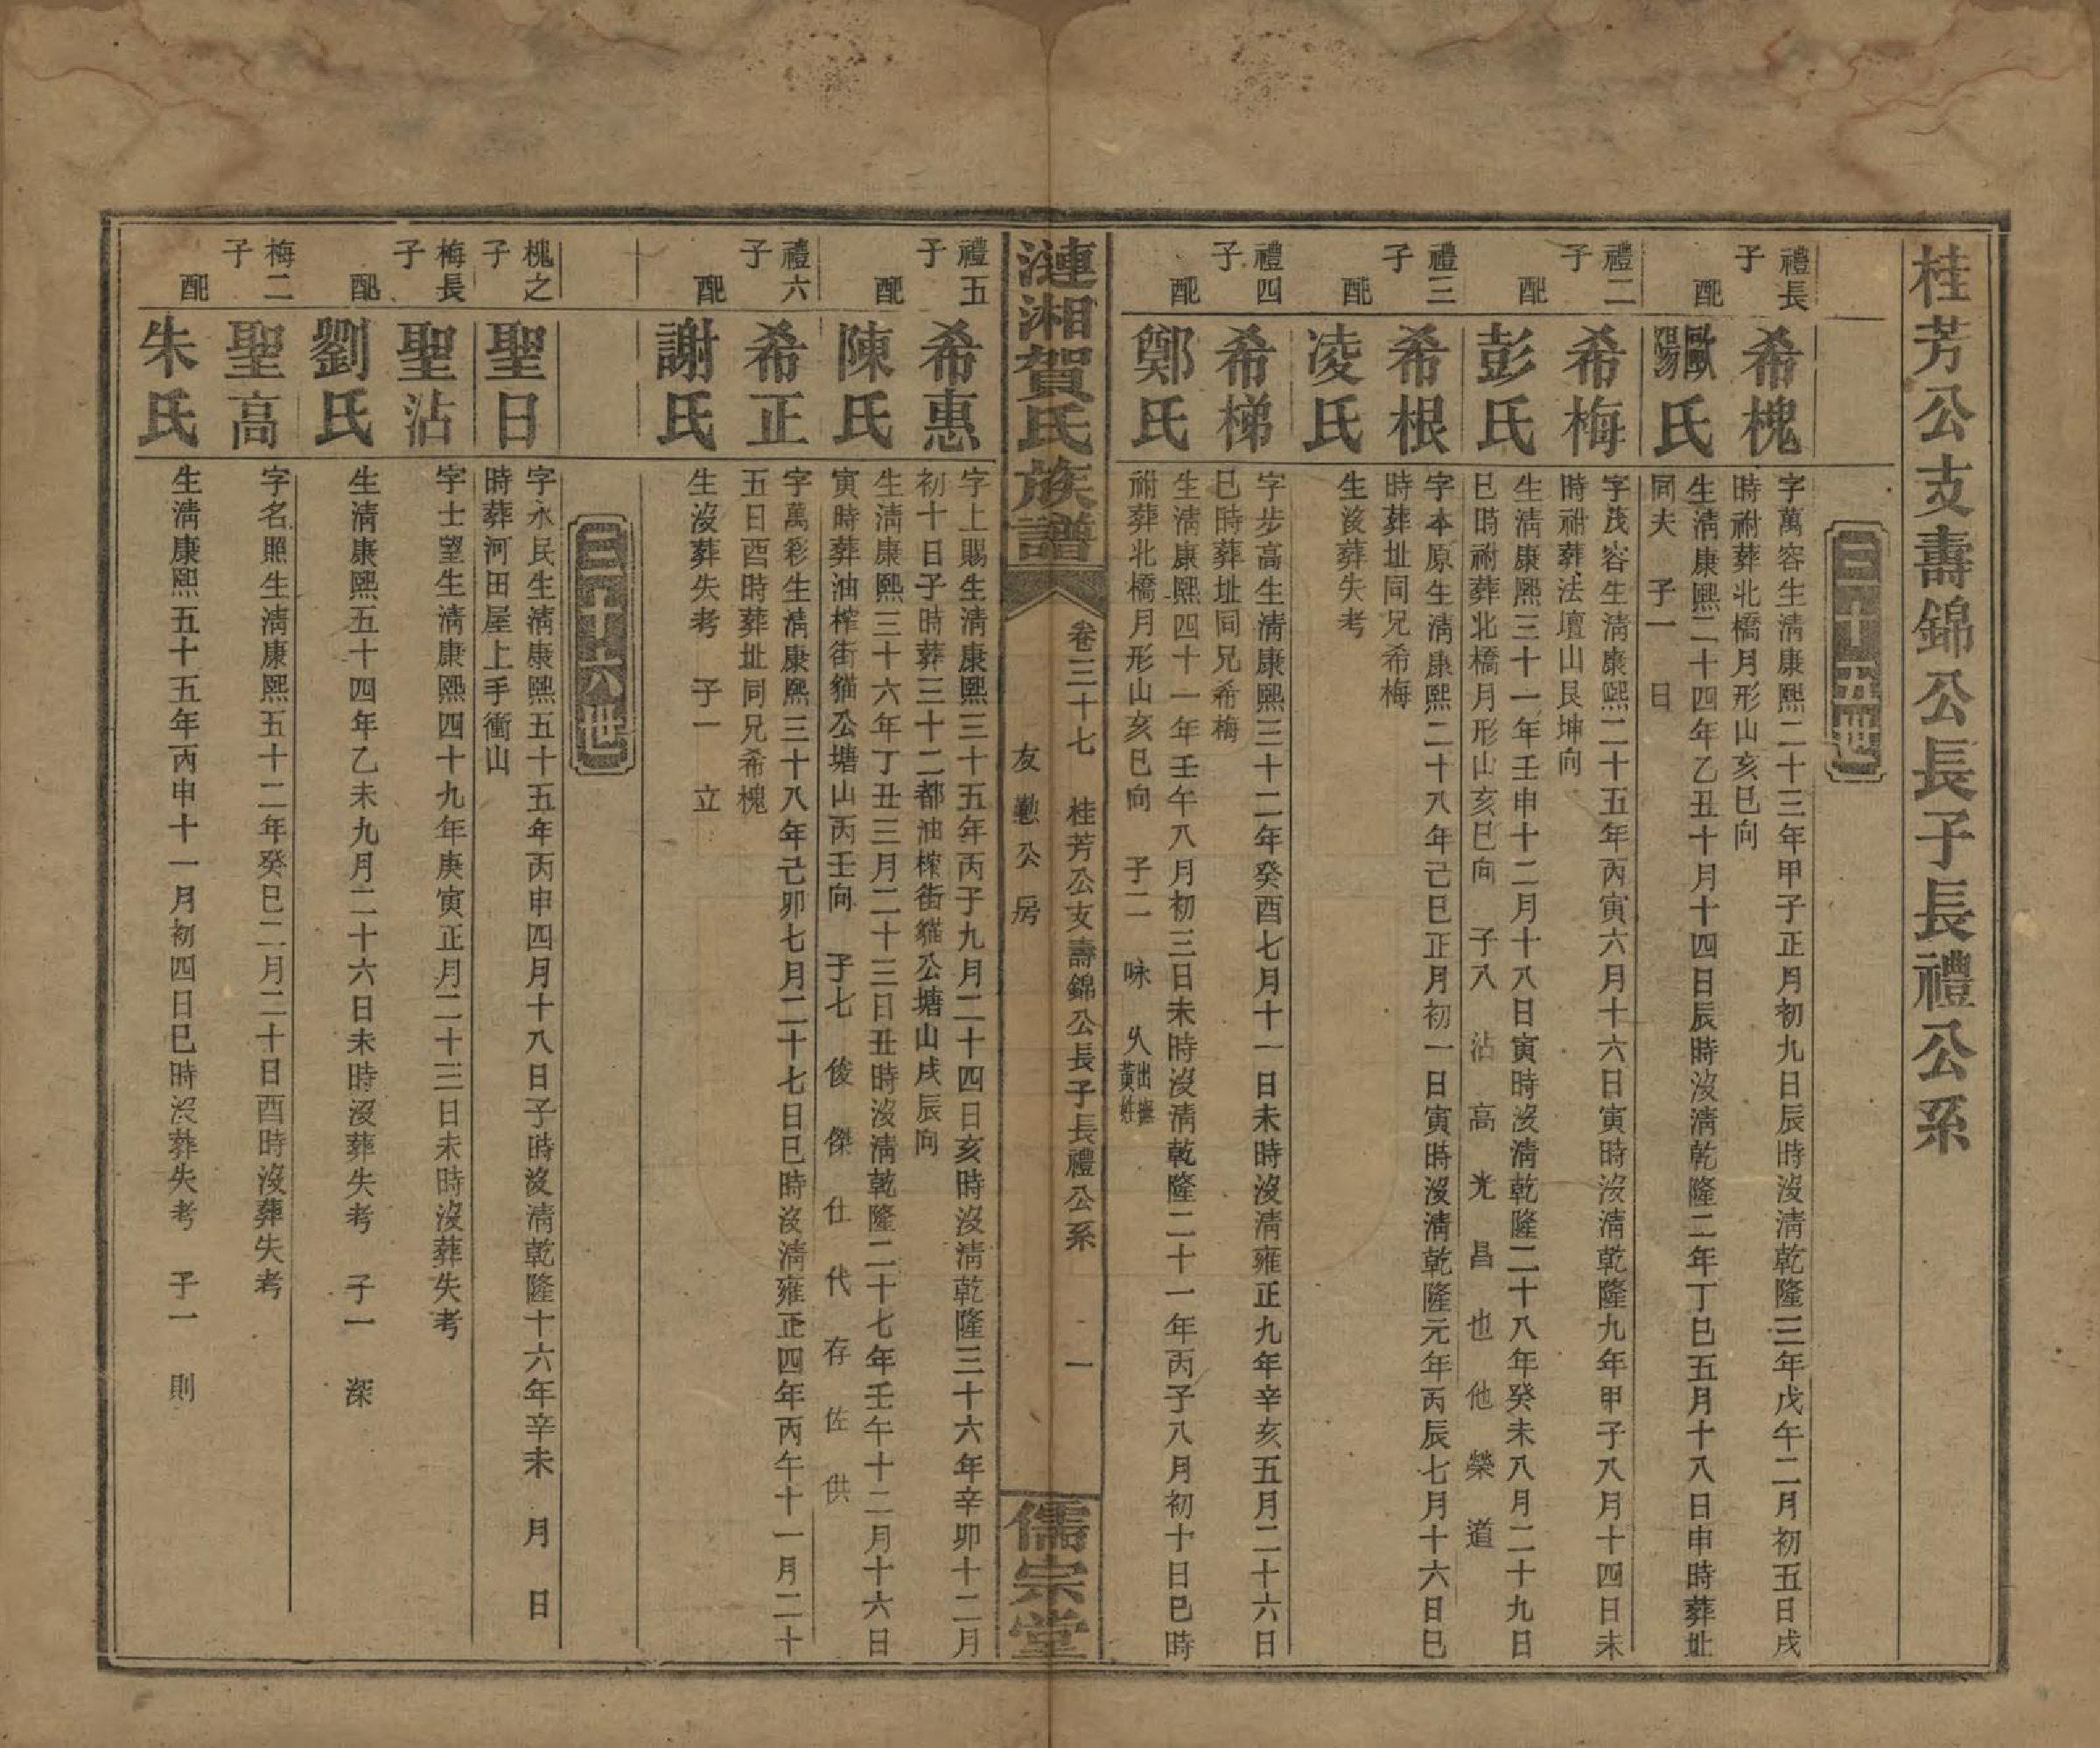 桂芳公支壽錦公長子長禮公系
三十五世
禮長子
希槐
字萬容生淸康熙二十三年甲子正月初九日辰時沒淸乾隆三年戊午二月初五日戌
時祔葬北橋月形山亥巳向
配
歐陽氏
生淸康熙二十四年乙丑十月十四日辰時沒淸乾隆二年丁巳五月十八日申時葬址
同夫　子一　日
禮二子
希梅
字茂容生淸康熙二十五年丙寅六月十六日寅時沒淸乾隆九年甲子八月十四日未
時祔葬法壇山艮坤向
配
彭氏
生淸康熙三十一年壬申十二月十八日寅時沒淸乾隆二十八年癸未八月二十九日
巳時祔葬北橋月形山亥巳向　子八　沾　高　光　昌　也　他　榮　道
禮三子
希根
字本原生淸康熙二十八年己巳正月初一日寅時沒淸乾隆元年丙辰七月十六日巳
時葬址同兄希梅
配
凌氏
生沒葬失考
禮四子
希梯
字步高生淸康熙三十二年癸酉七月十一日未時沒淸雍正九年辛亥五月二十六日
巳時葬址同兄希梅
配
鄭氏
生淸康熙四十一年壬午八月初三日未時沒淸乾隆二十一年丙子八月初十日巳時
祔葬北橋月形山亥巳向　子二　咏　久出撫黃姓
漣湘賀氏族譜
卷三十七　桂芳公支壽錦公長子長禮公系　一
友懃公房
儒宗堂
禮五子
希惠
字上賜生淸康熙三十五年丙子九月二十四日亥時沒淸乾隆三十六年辛卯十二月
初十日子時葬三十二都油榨街貓公塘山戌辰向
配
陳氏
生淸康熙三十六年丁丑三月二十三日丑時沒淸乾隆二十七年壬午十二月十六日
寅時葬油榨街貓公塘山丙壬向　子七　俊　傑　仕　代　存　佐　供
禮六子
希正
字萬彩生淸康熙三十八年己卯七月二十七日巳時沒淸雍正四年丙午十一月二十
五日酉時葬址同兄希槐
配
謝氏
生沒葬失考　子一　立
三十六世
槐之子
聖日
字永民生淸康熙五十五年丙申四月十八日子時沒淸乾隆十六年辛未　月　日
時葬河田屋上手衝山
梅長子
聖沾
字士望生淸康熙四十九年庚寅正月二十三日未時沒葬失考
配
劉氏
生淸康熙五十四年乙未九月二十六日未時沒葬失考　子一　深
梅二子
聖高
字名照生淸康熙五十二年癸巳二月二十日酉時沒葬失考
配
朱氏
生淸康熙五十五年丙申十一月初四日巳時沒葬失考　子一　則